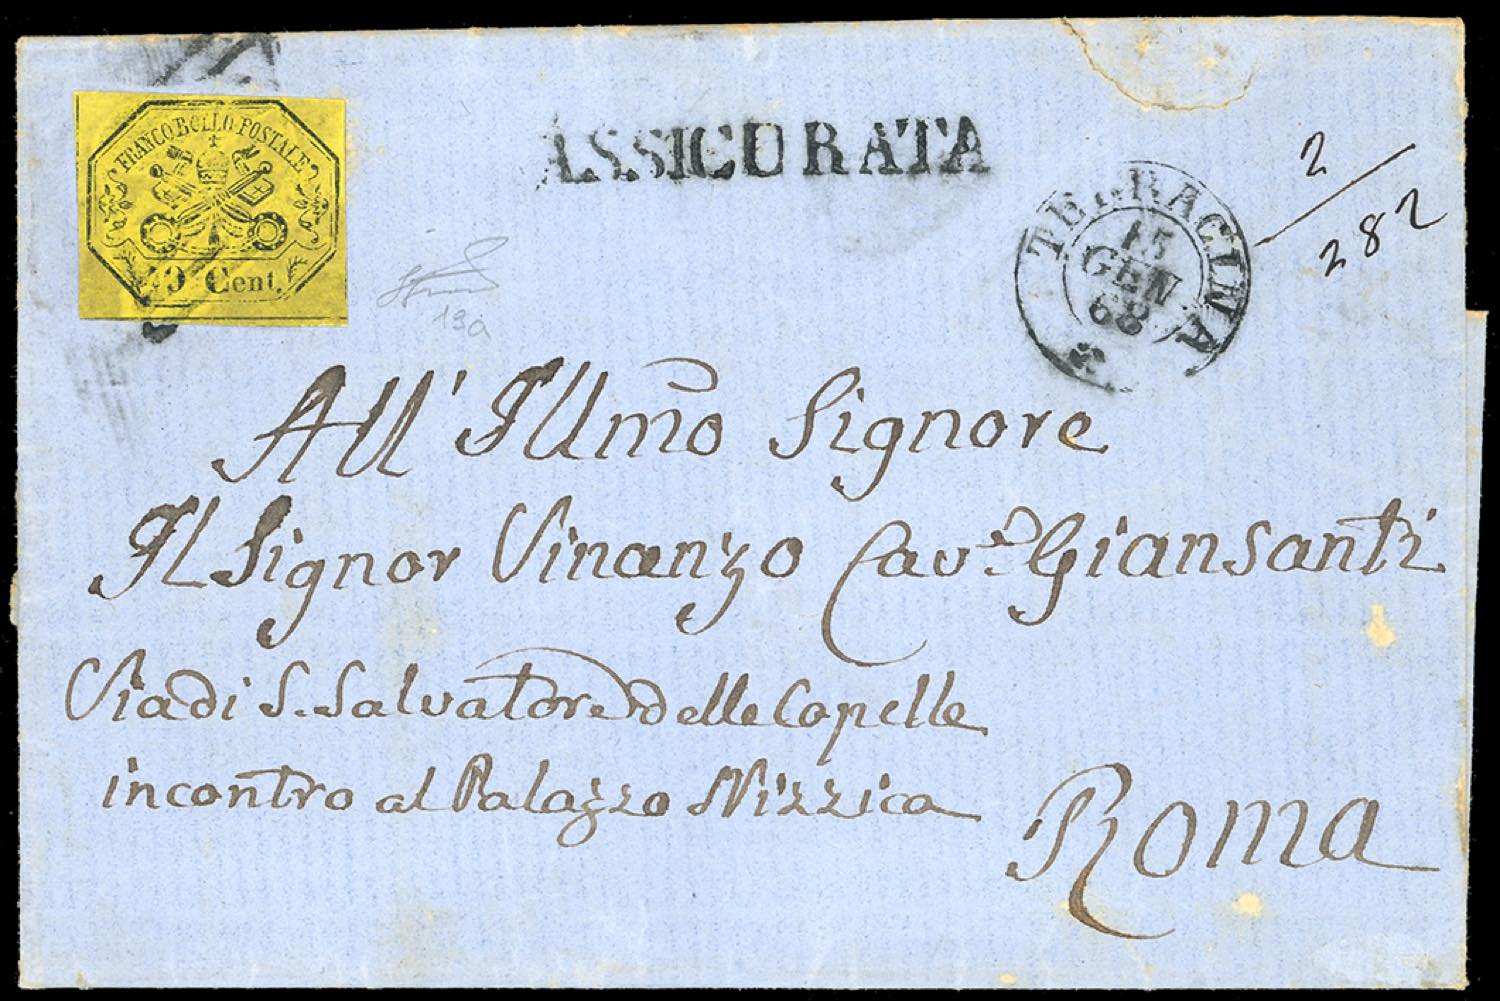 FRANCO BOLLO POSTALE
40 Cent.
ASSICURATA
TERRACINA
15
GEN
68
2
282
13a
All' Illmo Signore
Il Signor Vinanzo Cav.e Giansanti
Via di S. Salvatore delle Copelle
incontro al Palazzo
Roma